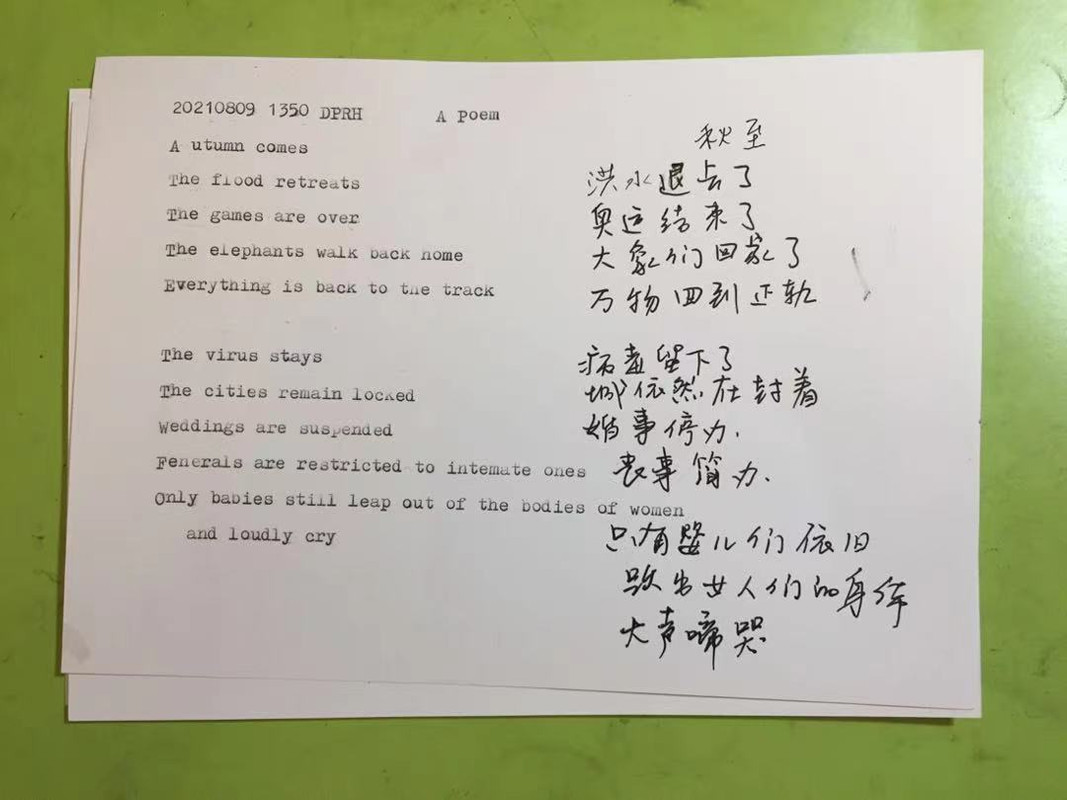 20210809 1350 DPRH A Poem
A utumn comes
秋至
The flood retreats
洪水退去了
The games are over
奥运结束了
The elephants walk back home
大象们回家了
Everything is back to the track
万物回到正轨
The virus stays
病毒留下了
The cities remain locked
城依然在封着
Weddings are suspended
婚事停办.
Fenerals are restricted to intemate ones
丧事简办.
Only babies still leap out of the bodies of women
and loudly cry
只有婴儿们依旧
跃出女人们的身体
大声啼哭